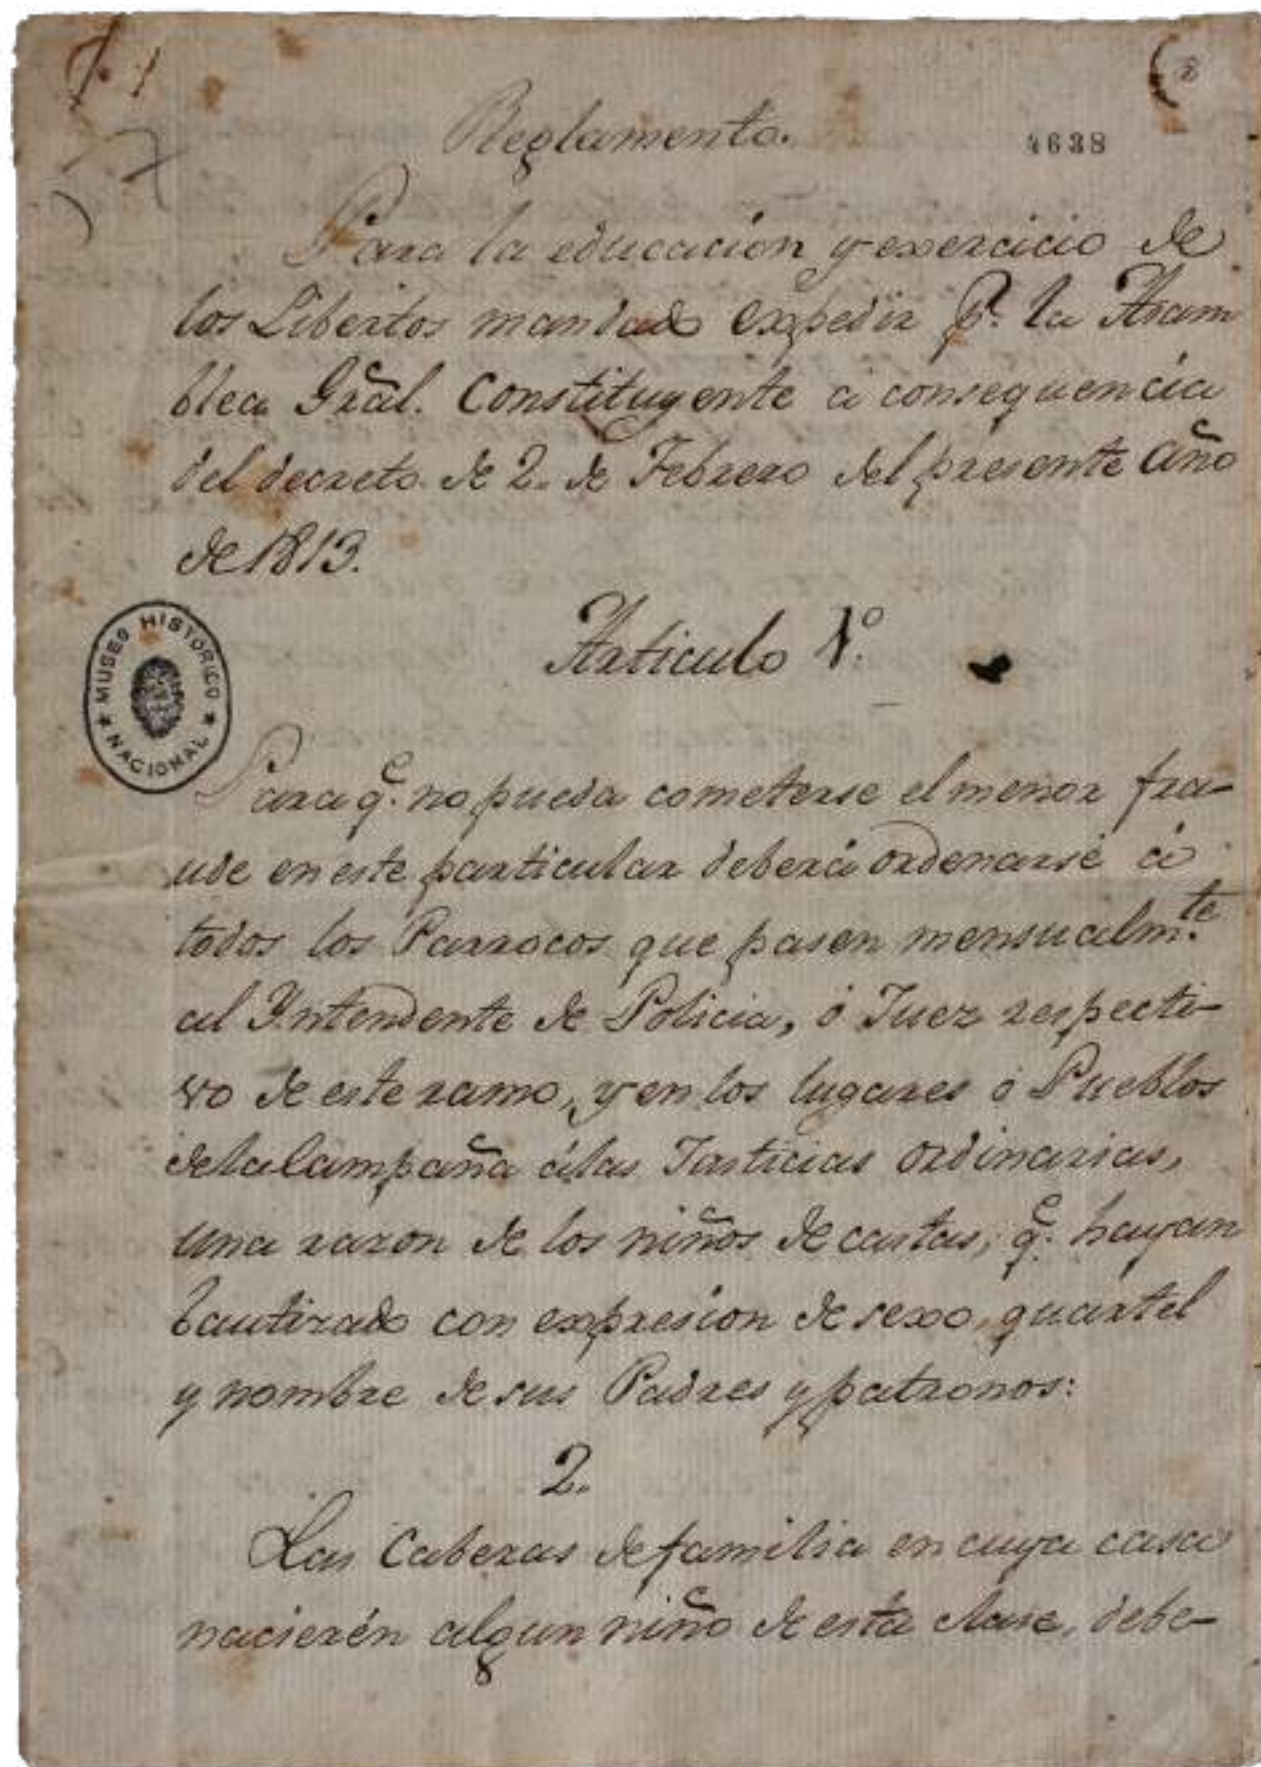 Reglamento.
4638
Para la educación y exercicio de
los Libertos mandado expedir pr. la Asam
blea Gral. Constituyente á consequencia
del decreto de 2. de Febrero del presente Año
de 1813.
Articulo 1º.
MUSEO HISTÓRICO
NACIONAL
Para qe. no pueda cometerse el menor fra-
ude en este particular deberá ordenarse á
todos los Parrocos que pasen mensualmte.
al Yntendente de Policia, ó Juez respecti-
vo de este ramo, y en los lugares ó Pueblos
de la Campaña á las Justicias ordinarias,
una razon de los niños de castas, qe. hayan
bautizado con expresion de sexo, quartel
y nombre de sus Padres y patronos:
2.
Las Cabezas de familia en cuya casa
nacierén algun niño de esta clase, debe-